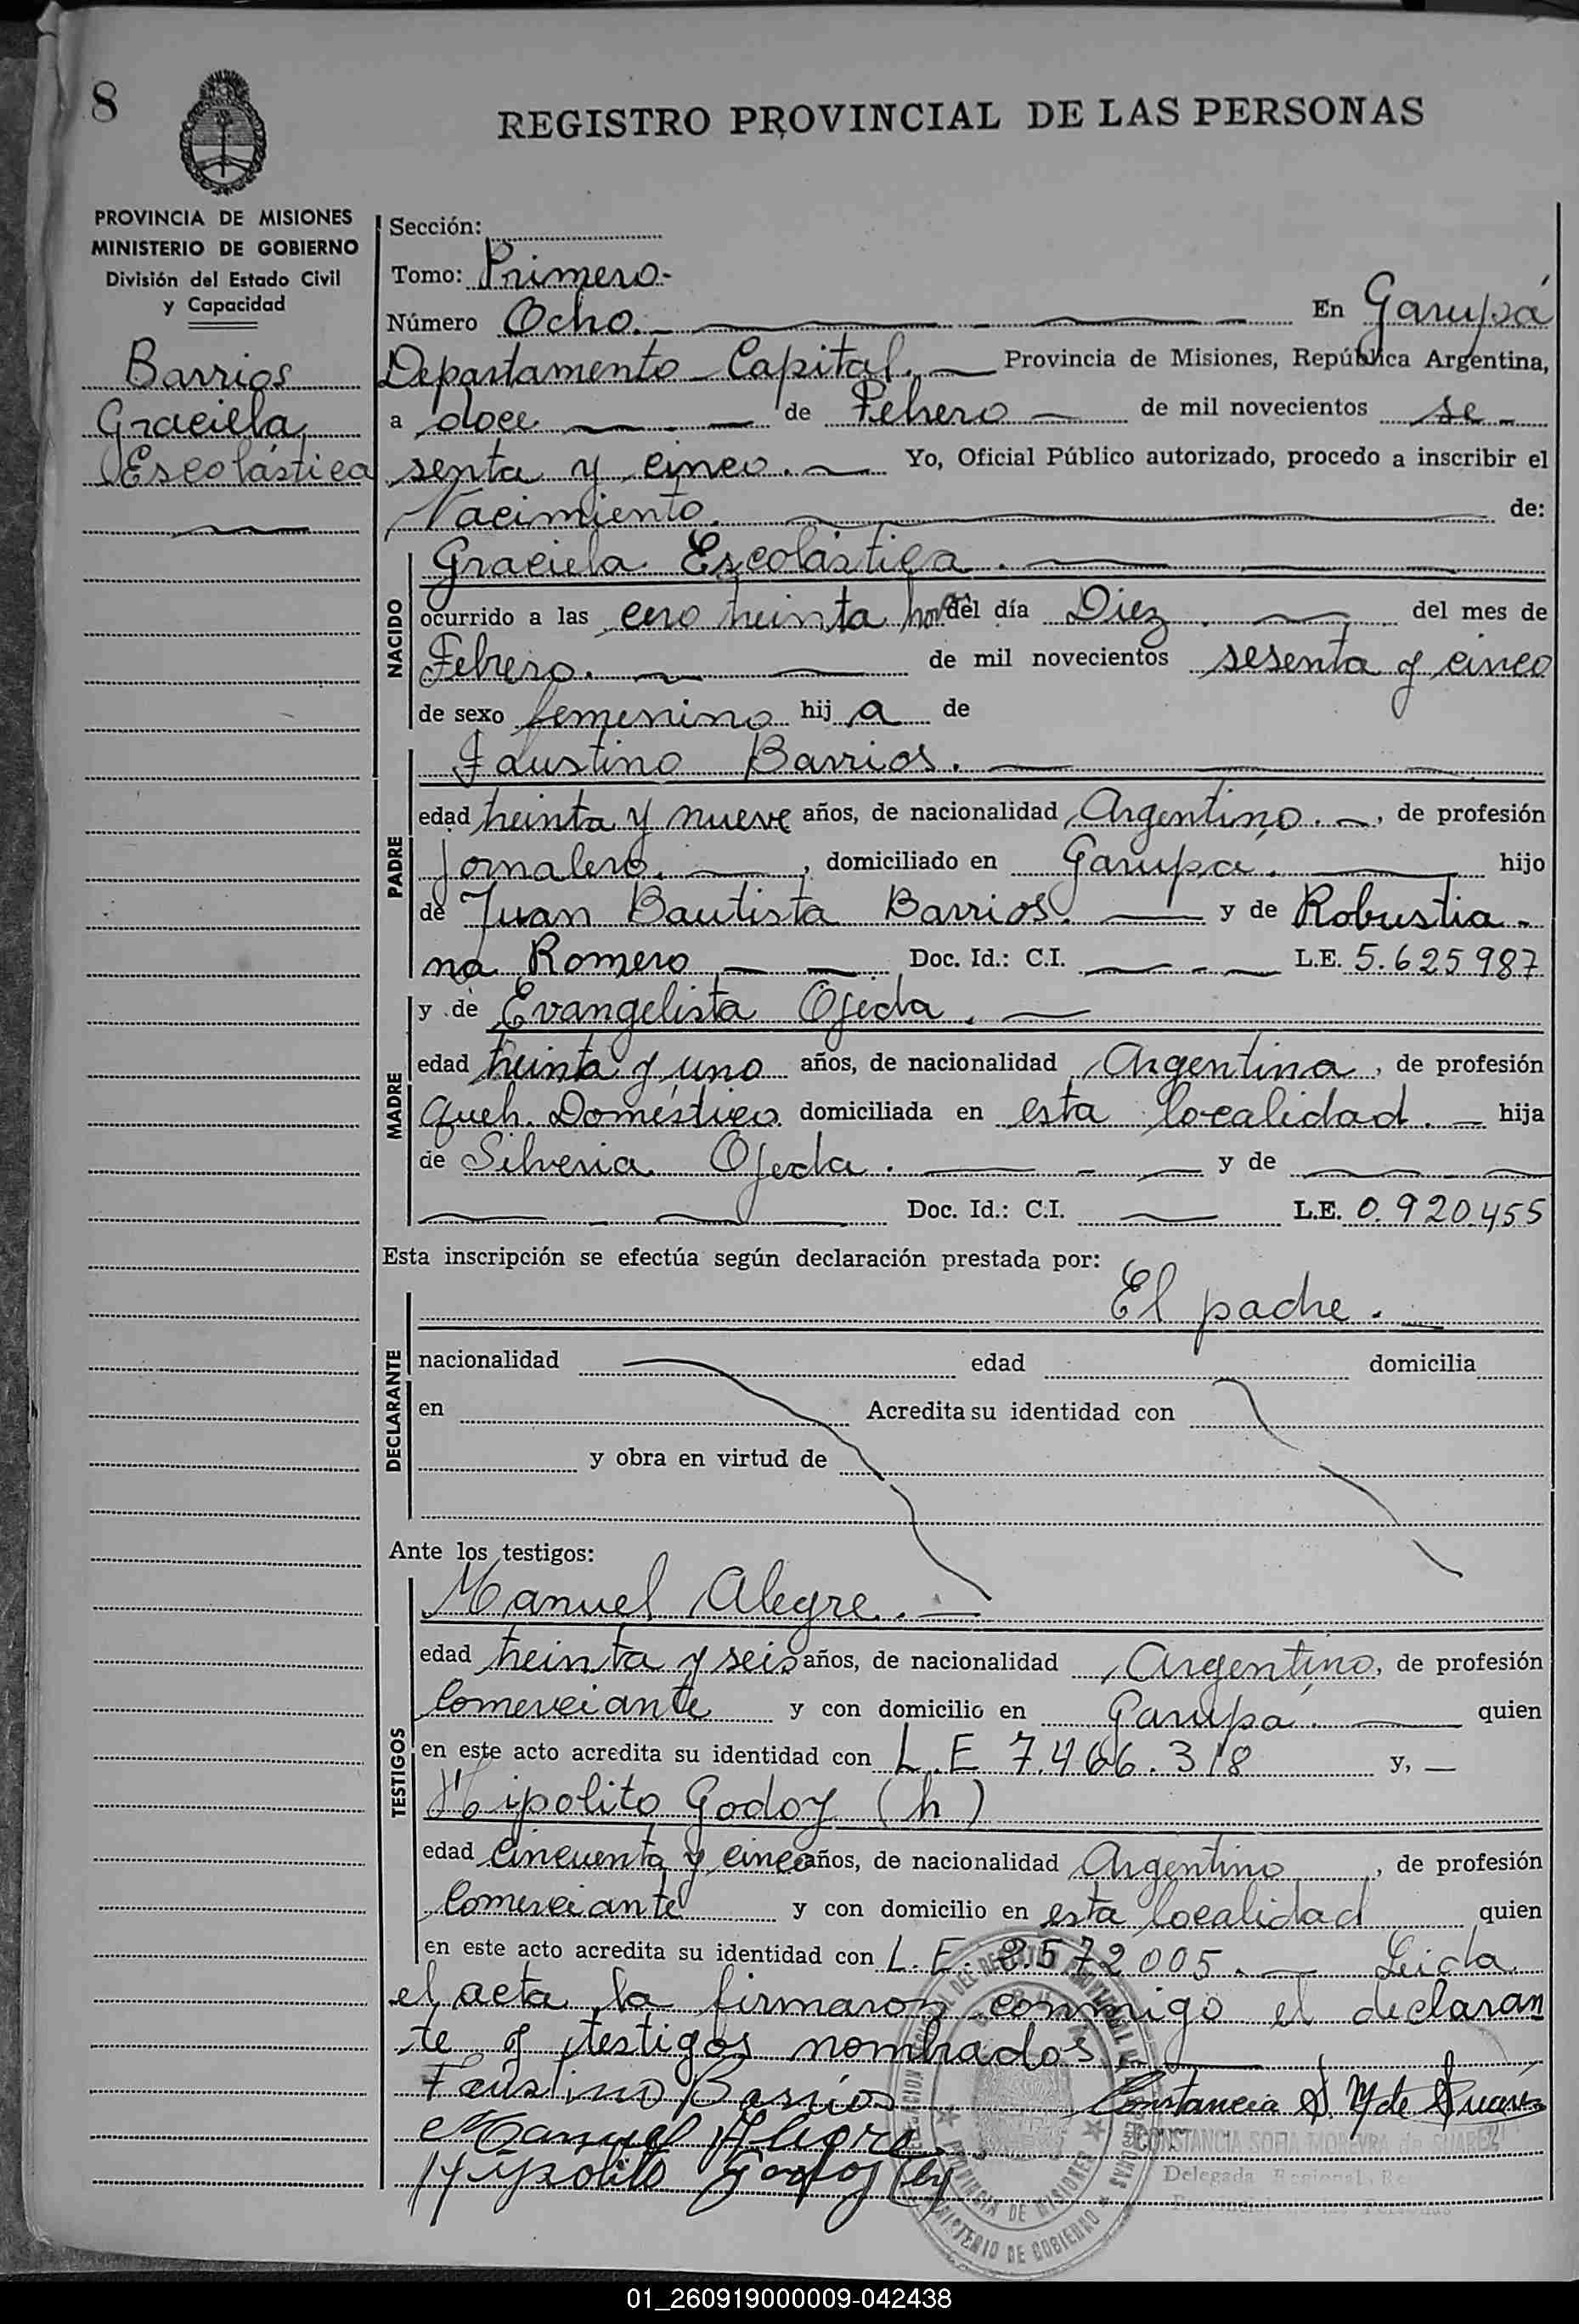 8
REGISTRO PROVINCIAL DE LAS PERSONAS
PROVINCIA DE MISIONES
MINISTERIO DE GOBIERNO
División del Estado Civil
y Capacidad
Barrios
Graciela
Escolástica
Sección:
Tomo: Primero.
Número Ocho. En Garupá
Departamento Capital. Provincia de Misiones, República Argentina,
a doce de Febrero de mil novecientos se-
senta y cinco. Yo, Oficial Público autorizado, procedo a inscribir el
Nacimiento. de:
NACIDO
Graciela Escolástica.
ocurrido a las cero treinta horas del día Diez. del mes de
Febrero. de mil novecientos sesenta y cinco
de sexo femenino hij a de
Faustino Barrios.
PADRE
edad treinta y nueve años, de nacionalidad Argentino. , de profesión
Jornalero. , domiciliado en Garupá. hijo
de Juan Bautista Barrios. y de Robustia-
na Romero Doc. Id.: C.I. L.E. 5.625987
MADRE
y de Evangelista Ojeda.
edad treinta y uno años, de nacionalidad Argentina, de profesión
Queh. Doméstico. domiciliada en esta localidad. hija
de Silveria Ojeda. y de
Doc. Id.: C.I. L.E. 0.920.455
Esta inscripción se efectúa según declaración prestada por:
El padre.
DECLARANTE
nacionalidad edad domicilia
en Acredita su identidad con
y obra en virtud de
Ante los testigos:
TESTIGOS
Manuel Alegre.
edad treinta y seis años, de nacionalidad Argentino, de profesión
Comerciante y con domicilio en Garupá. quien
en este acto acredita su identidad con L.E 7.466.318 y,
Hipolito Godoy (h)
edad cincuenta y cinco años, de nacionalidad Argentino, de profesión
Comerciante y con domicilio en esta localidad quien
en este acto acredita su identidad con L.E. 2.572005. Leida
el acta la firmaron conmigo el declaran
te y testigos nombrados.
Faustino Barrios Constancia S. M de Suarez
Manuel Alegre
Hipolito Godoy (h)
CONSTANCIA SOFIA MOREYRA de SUAREZ
Delegada Regional
PROVINCIA DE MISIONES
MINISTERIO DE GOBIERNO
01_260919000009-042438